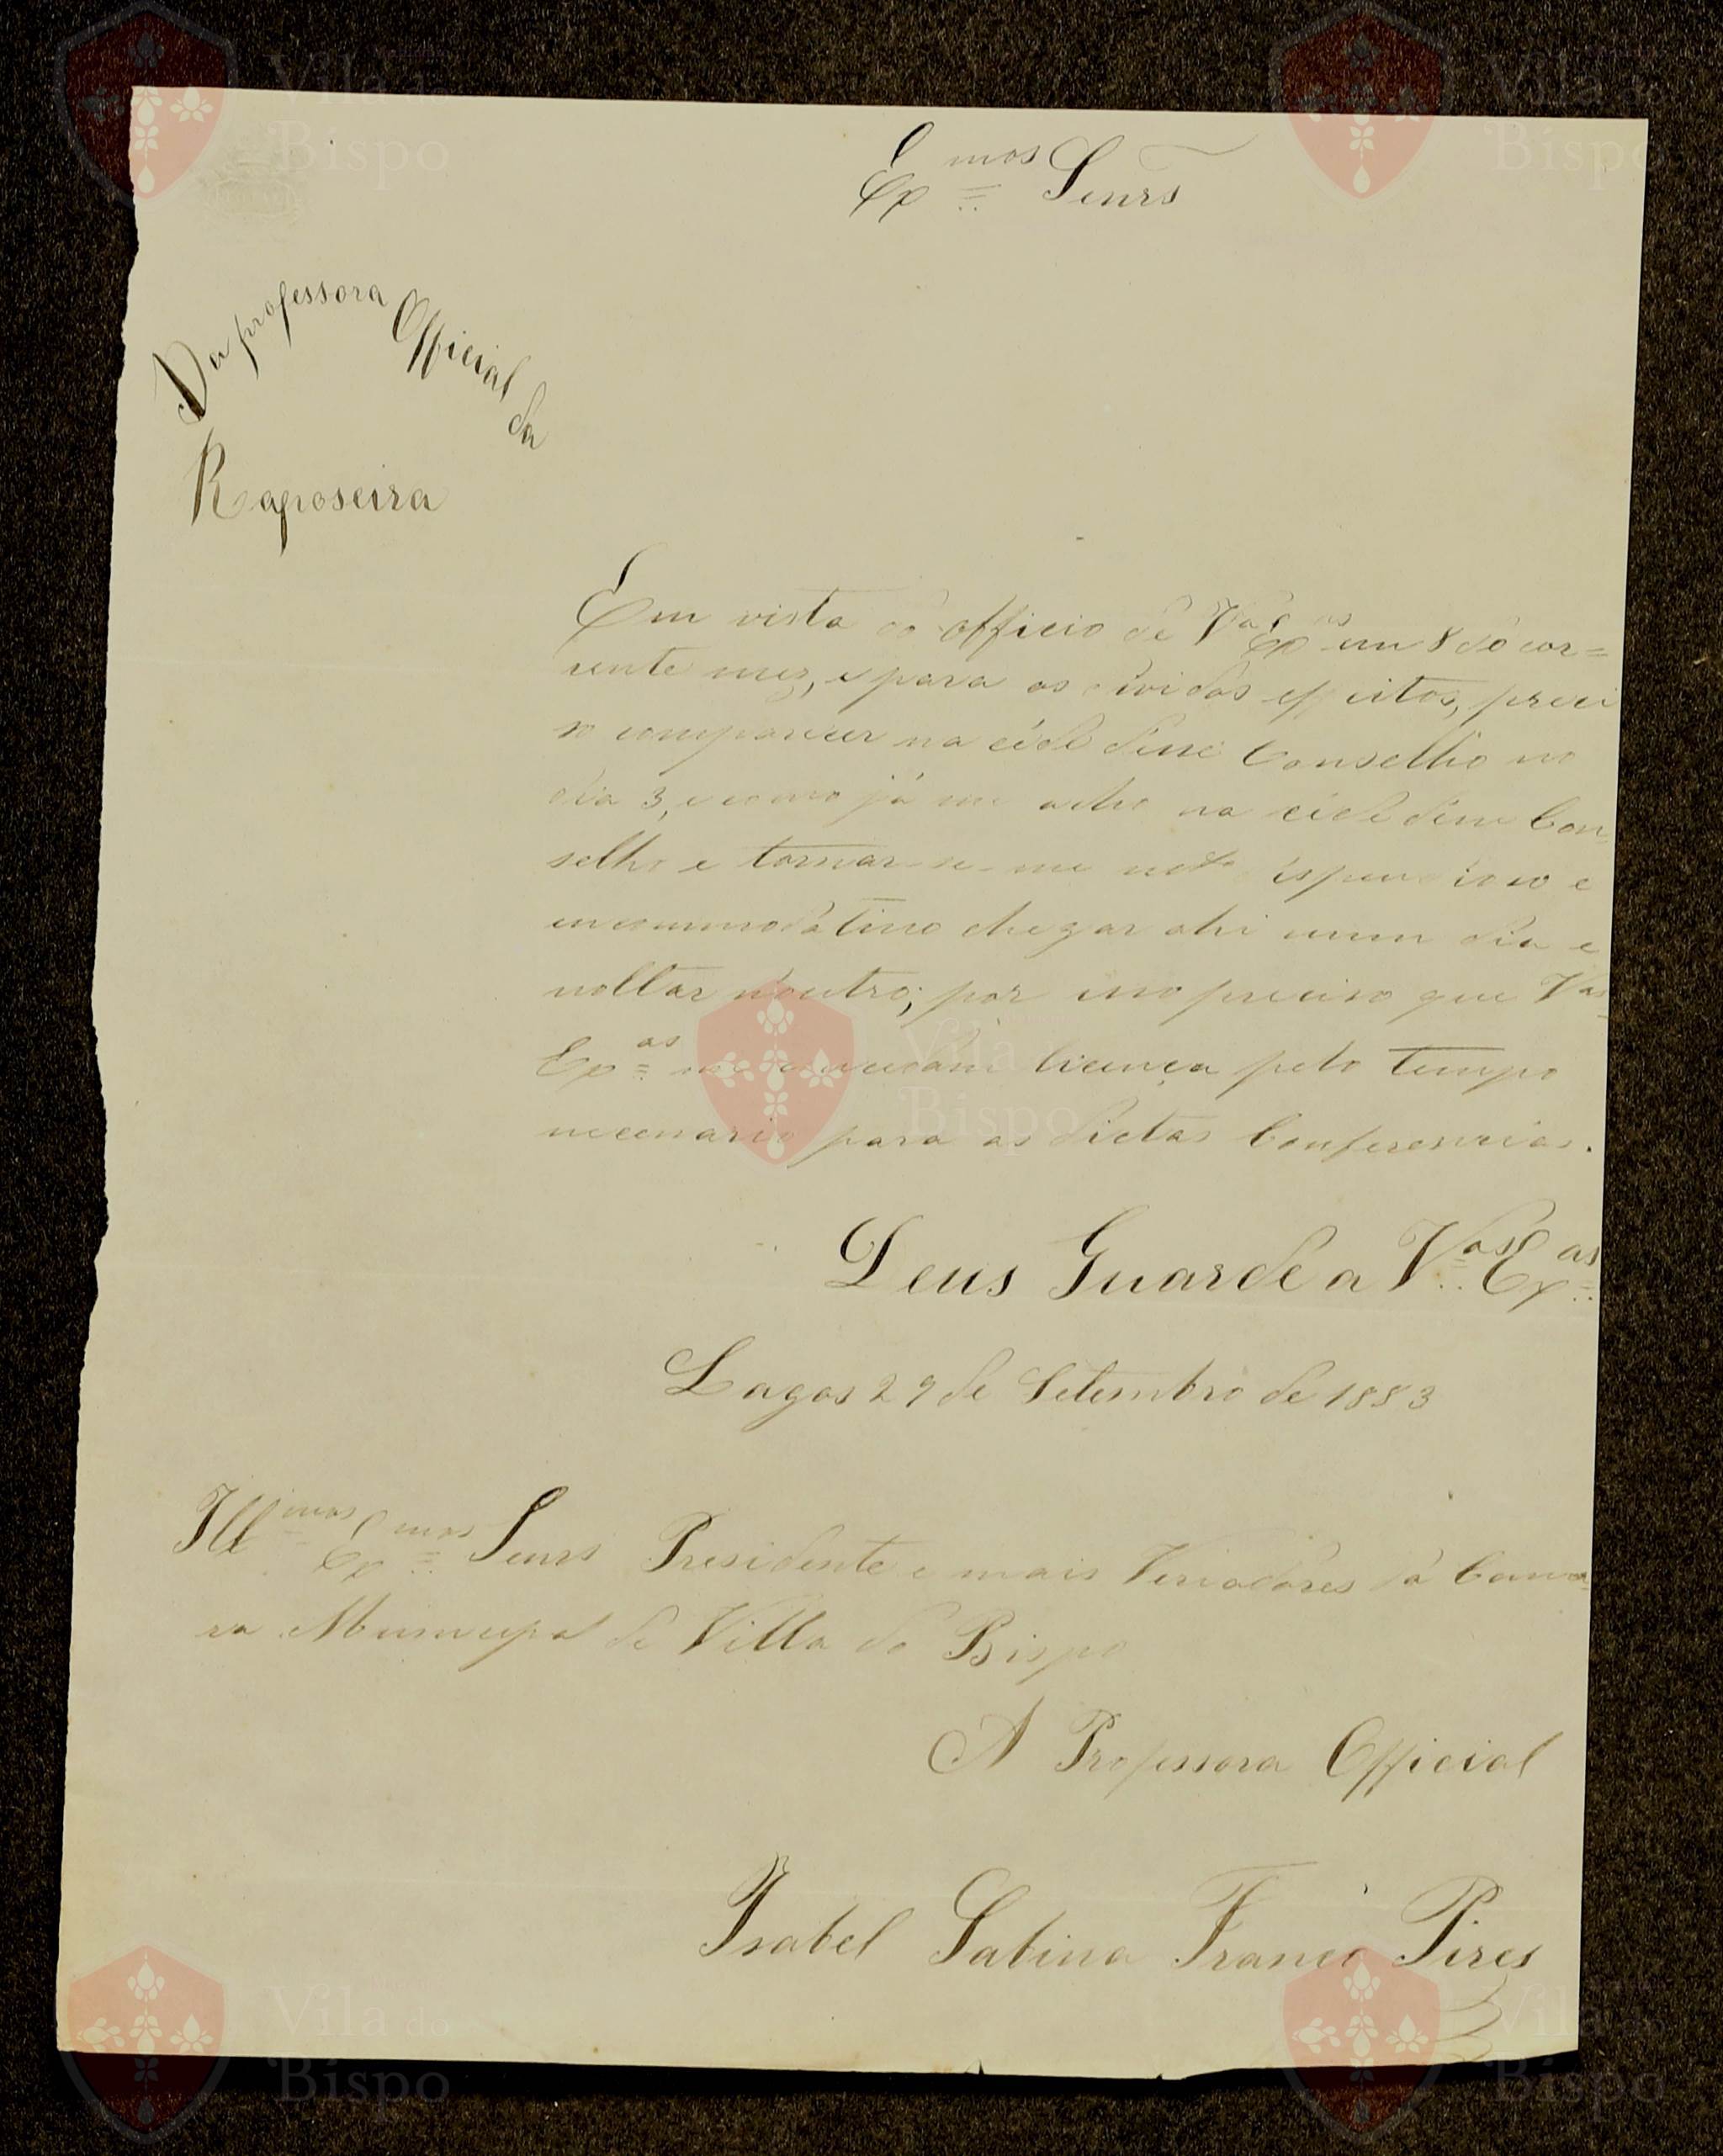 Ex.mos Senrs
Da professora Official da
Raposeira
Em vista do officio de Vas Exas em 8 do cor=
rente mez, e para os dividos effeitos, preci
so comparecer na céde desse Conselho no
dia 3, e como já me acho na céde desse Con
selho e tornar-se-me dispendioso e
incommodativo chegar ahi num dia e
voltar noutro; por isso preciso que Vas
Ex.as me concedam licença pelo tempo
necessario para as dictas Conferencias.
Deus Guarde a V.as Ex.as
Lagos 29 de Setembro de 1883
Ill.mos Ex.mos Senrs Presidente e mais Veriadores da Cama
ra Municipal de Villa do Bispo
A Professora Official
Isabel Sabina Franco Pires
Vila do
Bispo
Vila do
Bispo
Vila do
Bispo
Vila do
Bispo
Vila do
Bispo